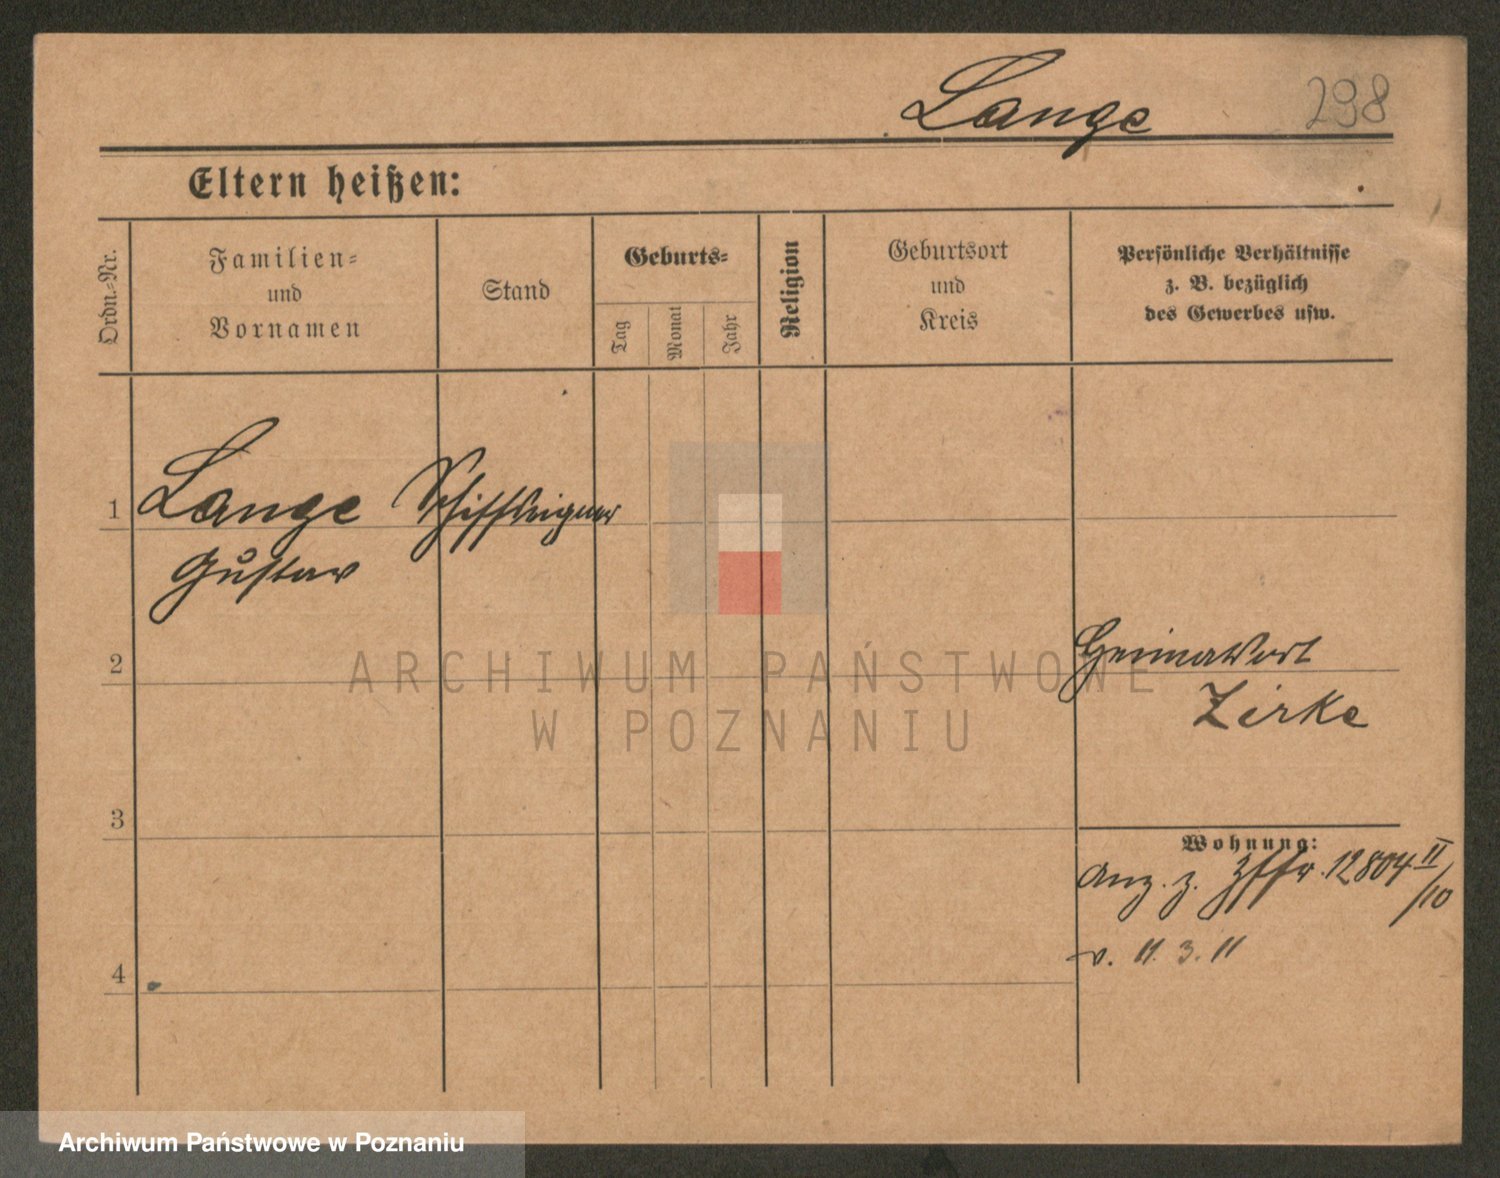 Lange 298
Eltern heißen:
Ordn.-Nr.
Familien-
und
Vornamen
Stand
Geburts-
Tag
Monat
Jahr
Religion
Geburtsort
und
Kreis
Persönliche Verhältnisse
z. B. bezüglich
des Gewerbes usw.
1 Lange Schiffseigner
Gustav
2 Heimatsort
Zirke
3
Wohnung:
Anz. z. 12804 II/10
v. 11. 3. 11
4
ARCHIWUM PAŃSTWOWE
W POZNANIU
Archiwum Państwowe w Poznaniu